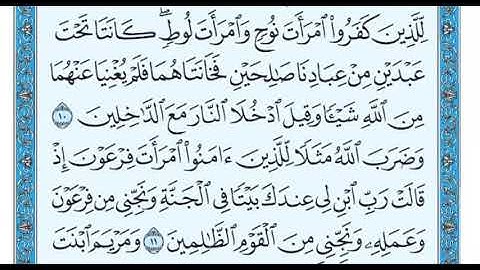 لِّلَّذِينَ كَفَرُوا۟ ٱمْرَأَتَ نُوحٍ وَٱمْرَأَتَ لُوطٍ ۖ كَانَتَا تَحْتَ
عَبْدَيْنِ مِنْ عِبَادِنَا صَٰلِحَيْنِ فَخَانَتَاهُمَا فَلَمْ يُغْنِيَا عَنْهُمَا
مِنَ ٱللَّهِ شَيْـًٔا وَقِيلَ ٱدْخُلَا ٱلنَّارَ مَعَ ٱلدَّٰخِلِينَ ١٠
وَضَرَبَ ٱللَّهُ مَثَلًا لِّلَّذِينَ ءَامَنُوا۟ ٱمْرَأَتَ فِرْعَوْنَ إِذْ
قَالَتْ رَبِّ ٱبْنِ لِى عِندَكَ بَيْتًا فِى ٱلْجَنَّةِ وَنَجِّنِى مِن فِرْعَوْنَ
وَعَمَلِهِۦ وَنَجِّنِى مِنَ ٱلْقَوْمِ ٱلظَّٰلِمِينَ ١١ وَمَرْيَمَ ٱبْنَتَ